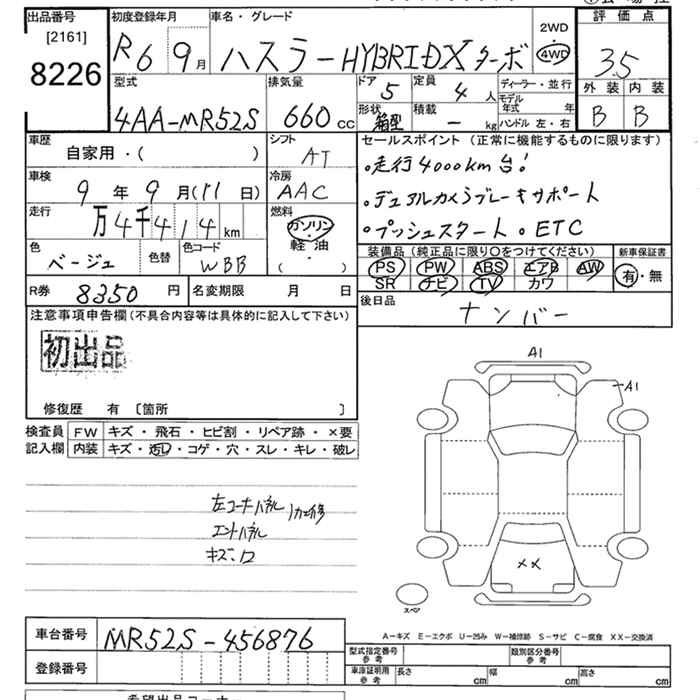 出品番号 初度登録年月 車名・グレード 評価点
[2161]
8226
R6 9月 ハスラー HYBRIDX ターボ 2WD 4WD 3.5
型式 排気量 ドア 5 定員 4人 ディーラー・並行 外装 内装
モデル年式 年
4AA-MR52S 660cc 形状 箱型 積載 - kg ハンドル 左・右 B B
車歴 シフト セールスポイント(正常に機能するものに限ります)
自家用・( ) AT
・走行4000km台!
車検 冷房
9年9月(11日) AAC
・デュアルカメラブレーキサポート
走行 燃料
万4千414km ガソリン・
・プッシュスタート ・ETC
軽油・
( )
色 色替 色コード
ベージュ WBB
装備品(純正品に限り○をつけてください) 新車保証書
PS PW ABS エアB AW 有・無
SR ナビ TV カワ
R券 8350円 名変期限 月 日
後日品
ナンバー
注意事項申告欄(不具合内容等は具体的に記入して下さい)
初出品
修復歴 有 〔箇所 〕
A1
A1
検査員 FW キズ・飛石・ヒビ割・リペア跡・×要
記入欄 内装 キズ・汚レ・コゲ・穴・スレ・キレ・破レ
左コーナーパネル
エンドパネル
キズ・凹
××
スペア
A-キズ E-エクボ U-凹み W-補修跡 S-サビ C-腐食 XX-交換済
車台番号 MR52S-456876
型式指定番号 参考 類別区分番号 参考
登録番号
車庫証明用 参考 長さ cm 幅 cm 高さ cm
希望出品コーナー